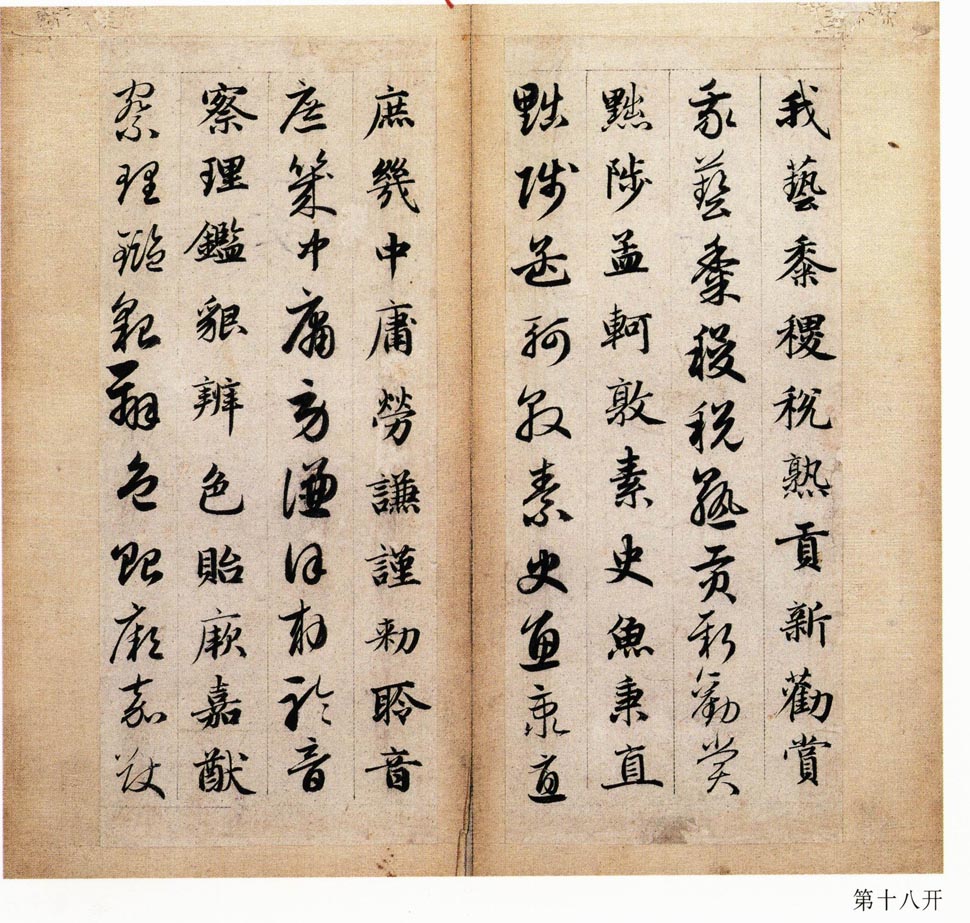 我藝黍稷稅熟貢新勸賞
我藝黍稷稅熟貢新勸賞
黜陟孟軻敦素史魚秉直
黜陟孟軻敦素史魚秉直
庶幾中庸勞謙謹勅聆音
庶幾中庸勞謙謹勅聆音
察理鑑貌辨色貽厥嘉猷
察理鑑貌辨色貽厥嘉猷
第十八开